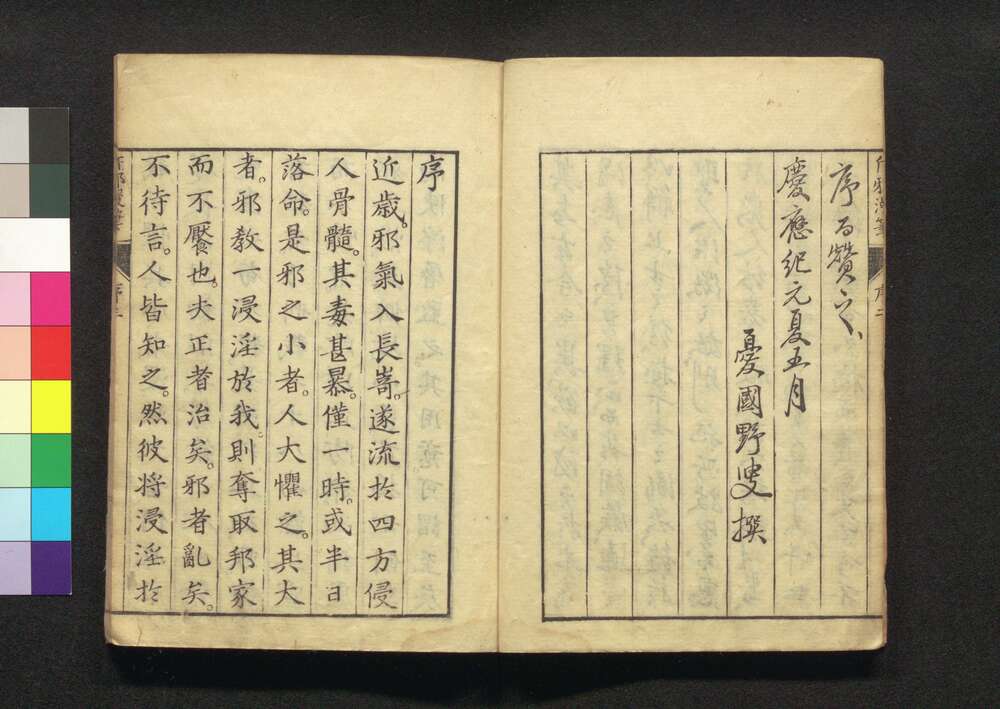 序而贊之、
慶應紀元夏五月
憂國野叟撰
序
近歲。邪氣入長嵜。遂流於四方侵
人骨髓。其毒甚暴。僅一時。或半日
落命。是邪之小者。人大懼之。其大
者。邪敎一浸淫於我。則奪取邦家
而不饜也。夫正者治矣。邪者亂矣。
不待言。人皆知之。然彼將浸淫於